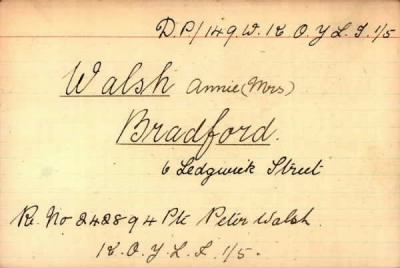 D.P/149 W. K. O. Y. L. I. 1/5
Walsh Annie (Mrs)
Bradford.
6 Sedgwick Street
Re. No 242894 Pte Peter Walsh.
K. O. Y. L. I. 1/5.